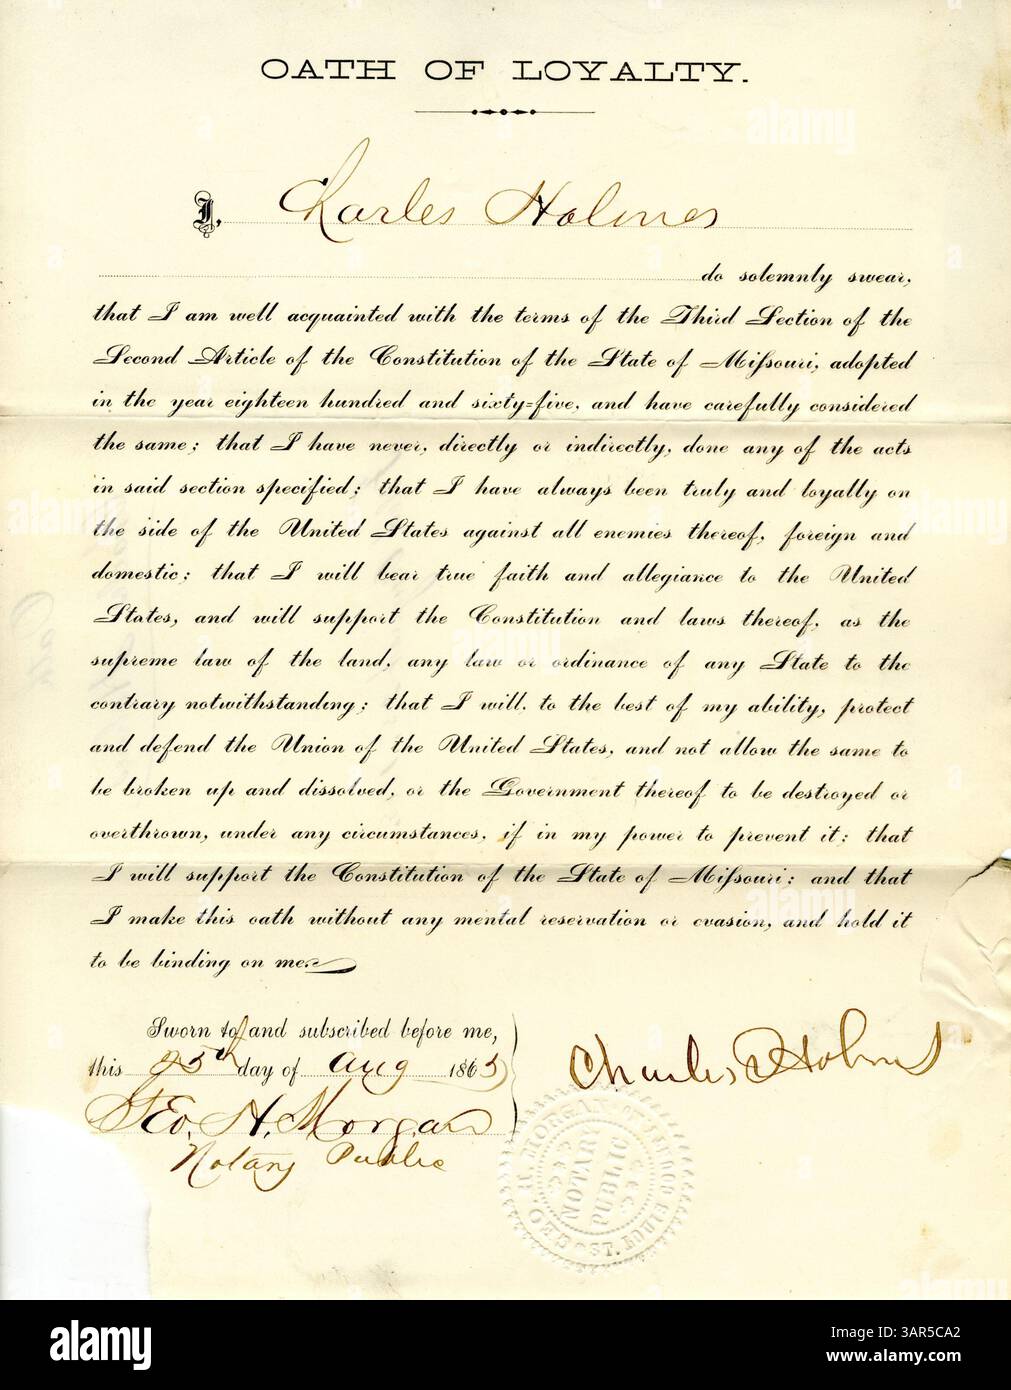 OATH OF LOYALTY.
I, Charles Holmes
do solemnly swear,
that I am well acquainted with the terms of the Third Section of the
Second Article of the Constitution of the State of Miſsouri, adopted
in the year eighteen hundred and sixty=five, and have carefully considered
the same; that I have never, directly or indirectly, done any of the acts
in said section specified; that I have always been truly and loyally on
the side of the United States against all enemies thereof, foreign and
domestic; that I will bear true faith and allegiance to the United
States, and will support the Constitution and laws thereof, as the
supreme law of the land, any law or ordinance of any State to the
contrary notwithstanding; that I will, to the best of my ability, protect
and defend the Union of the United States, and not allow the same to
be broken up and dissolved, or the Government thereof to be destroyed or
overthrown, under any circumstances, if in my power to prevent it; that
I will support the Constitution of the State of Miſsouri; and that
I make this oath without any mental reservation or evasion, and hold it
to be binding on me.
Sworn to and subscribed before me,
this 25th day of Aug 1865
Charles Holmes
Geo. H. Morgan
Notary Public
GEO. H. MORGAN ST. LOUIS
NOTARY
PUBLIC
alamy
Image ID: 3AR5CA2
www.alamy.com